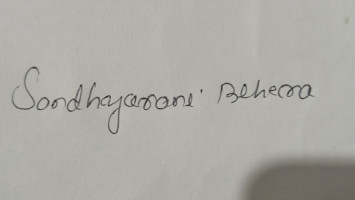 Sandhyarani Behera